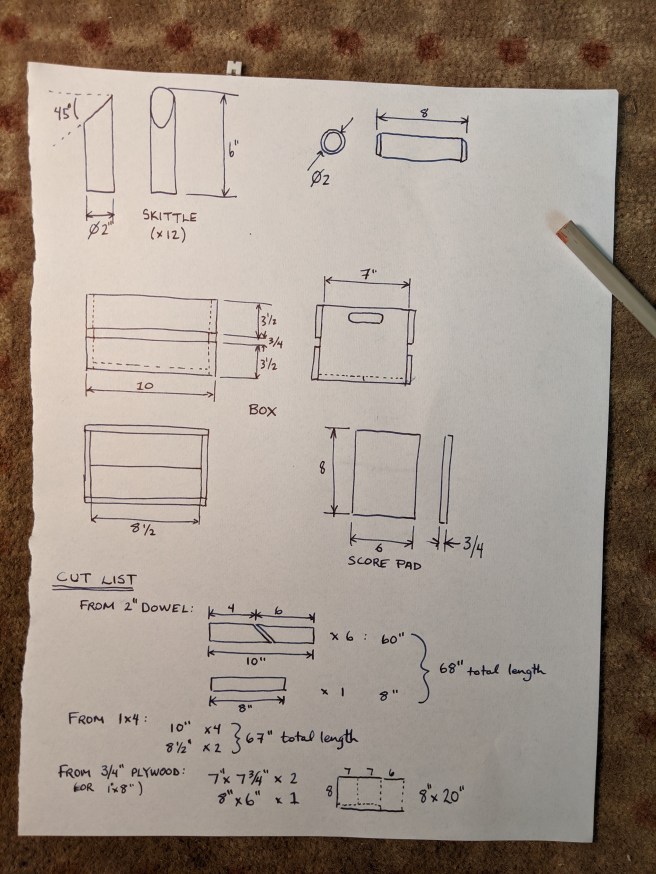 45°
6"
Ø2"
SKITTLE
(x12)
8
Ø2
3 1/2
3/4
3 1/2
10
7"
BOX
8 1/2
8
6
3/4
SCORE PAD
CUT LIST
FROM 2" DOWEL:
4 6
x 6 : 60"
10"
68" total length
x 1 8"
8"
FROM 1x4:
10" x4
8 1/2" x 2
67" total length
FROM 3/4" PLYWOOD:
(OR 1"x8")
7"x 7 3/4" x 2
8"x6" x 1
7 7 6
8
8"x 20"